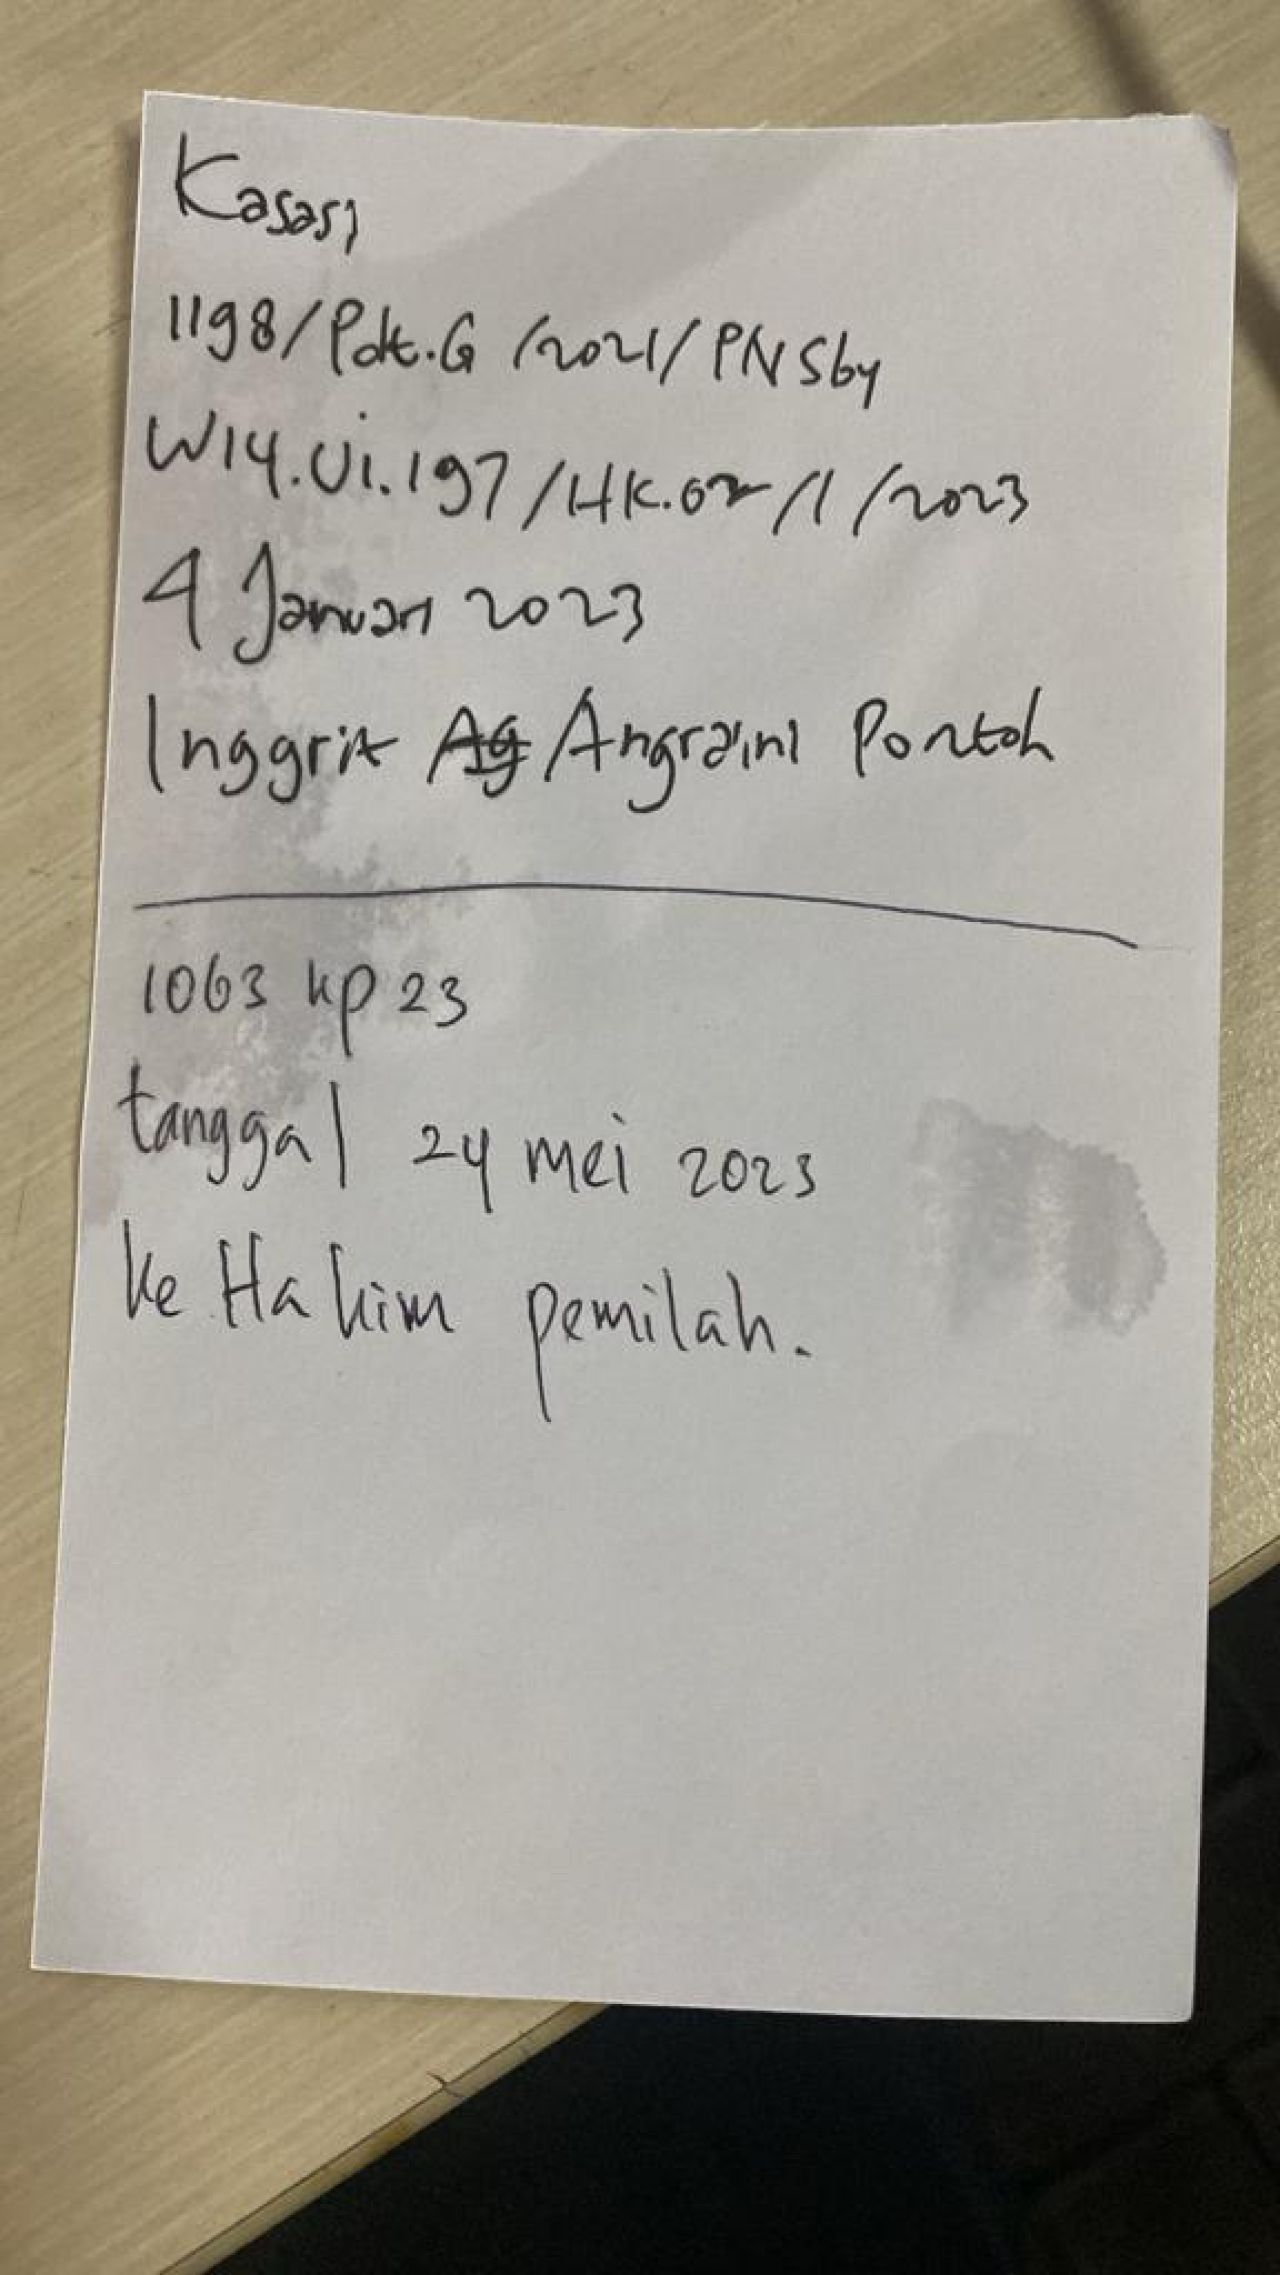 Kasasi
1198/Pdt.G/2021/PN Sby
W14.Ui.197/HK.02/1/2023
4 Januari 2023
Inggrit Ag Angraini Pontoh
1063 kp 23
tanggal 24 mei 2023
ke Hakim pemilah.